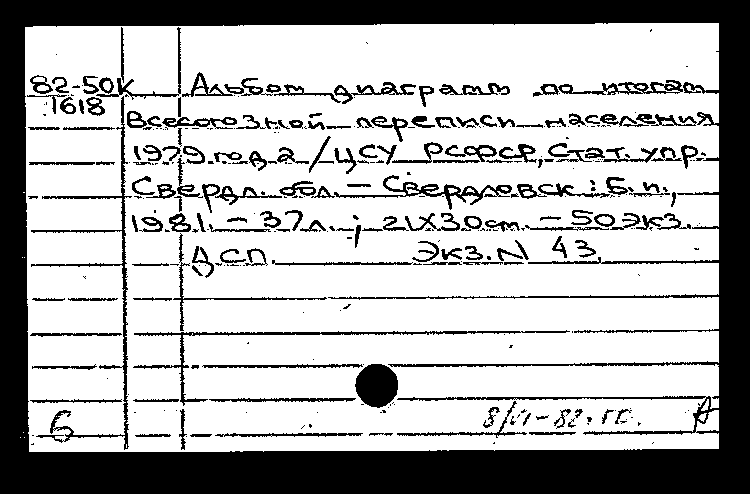 82-50К Альбом диаграмм по итогам
1618 Всесоюзной переписи населения
1979 года / ЦСУ РСФСР, Стат. упр.
Свердл. обл. – Свердловск : Б.и.,
1981. – 37л. ; 21X30см. – 50 экз.
ДСП. Экз. N 43.
8/VI-82. А
6